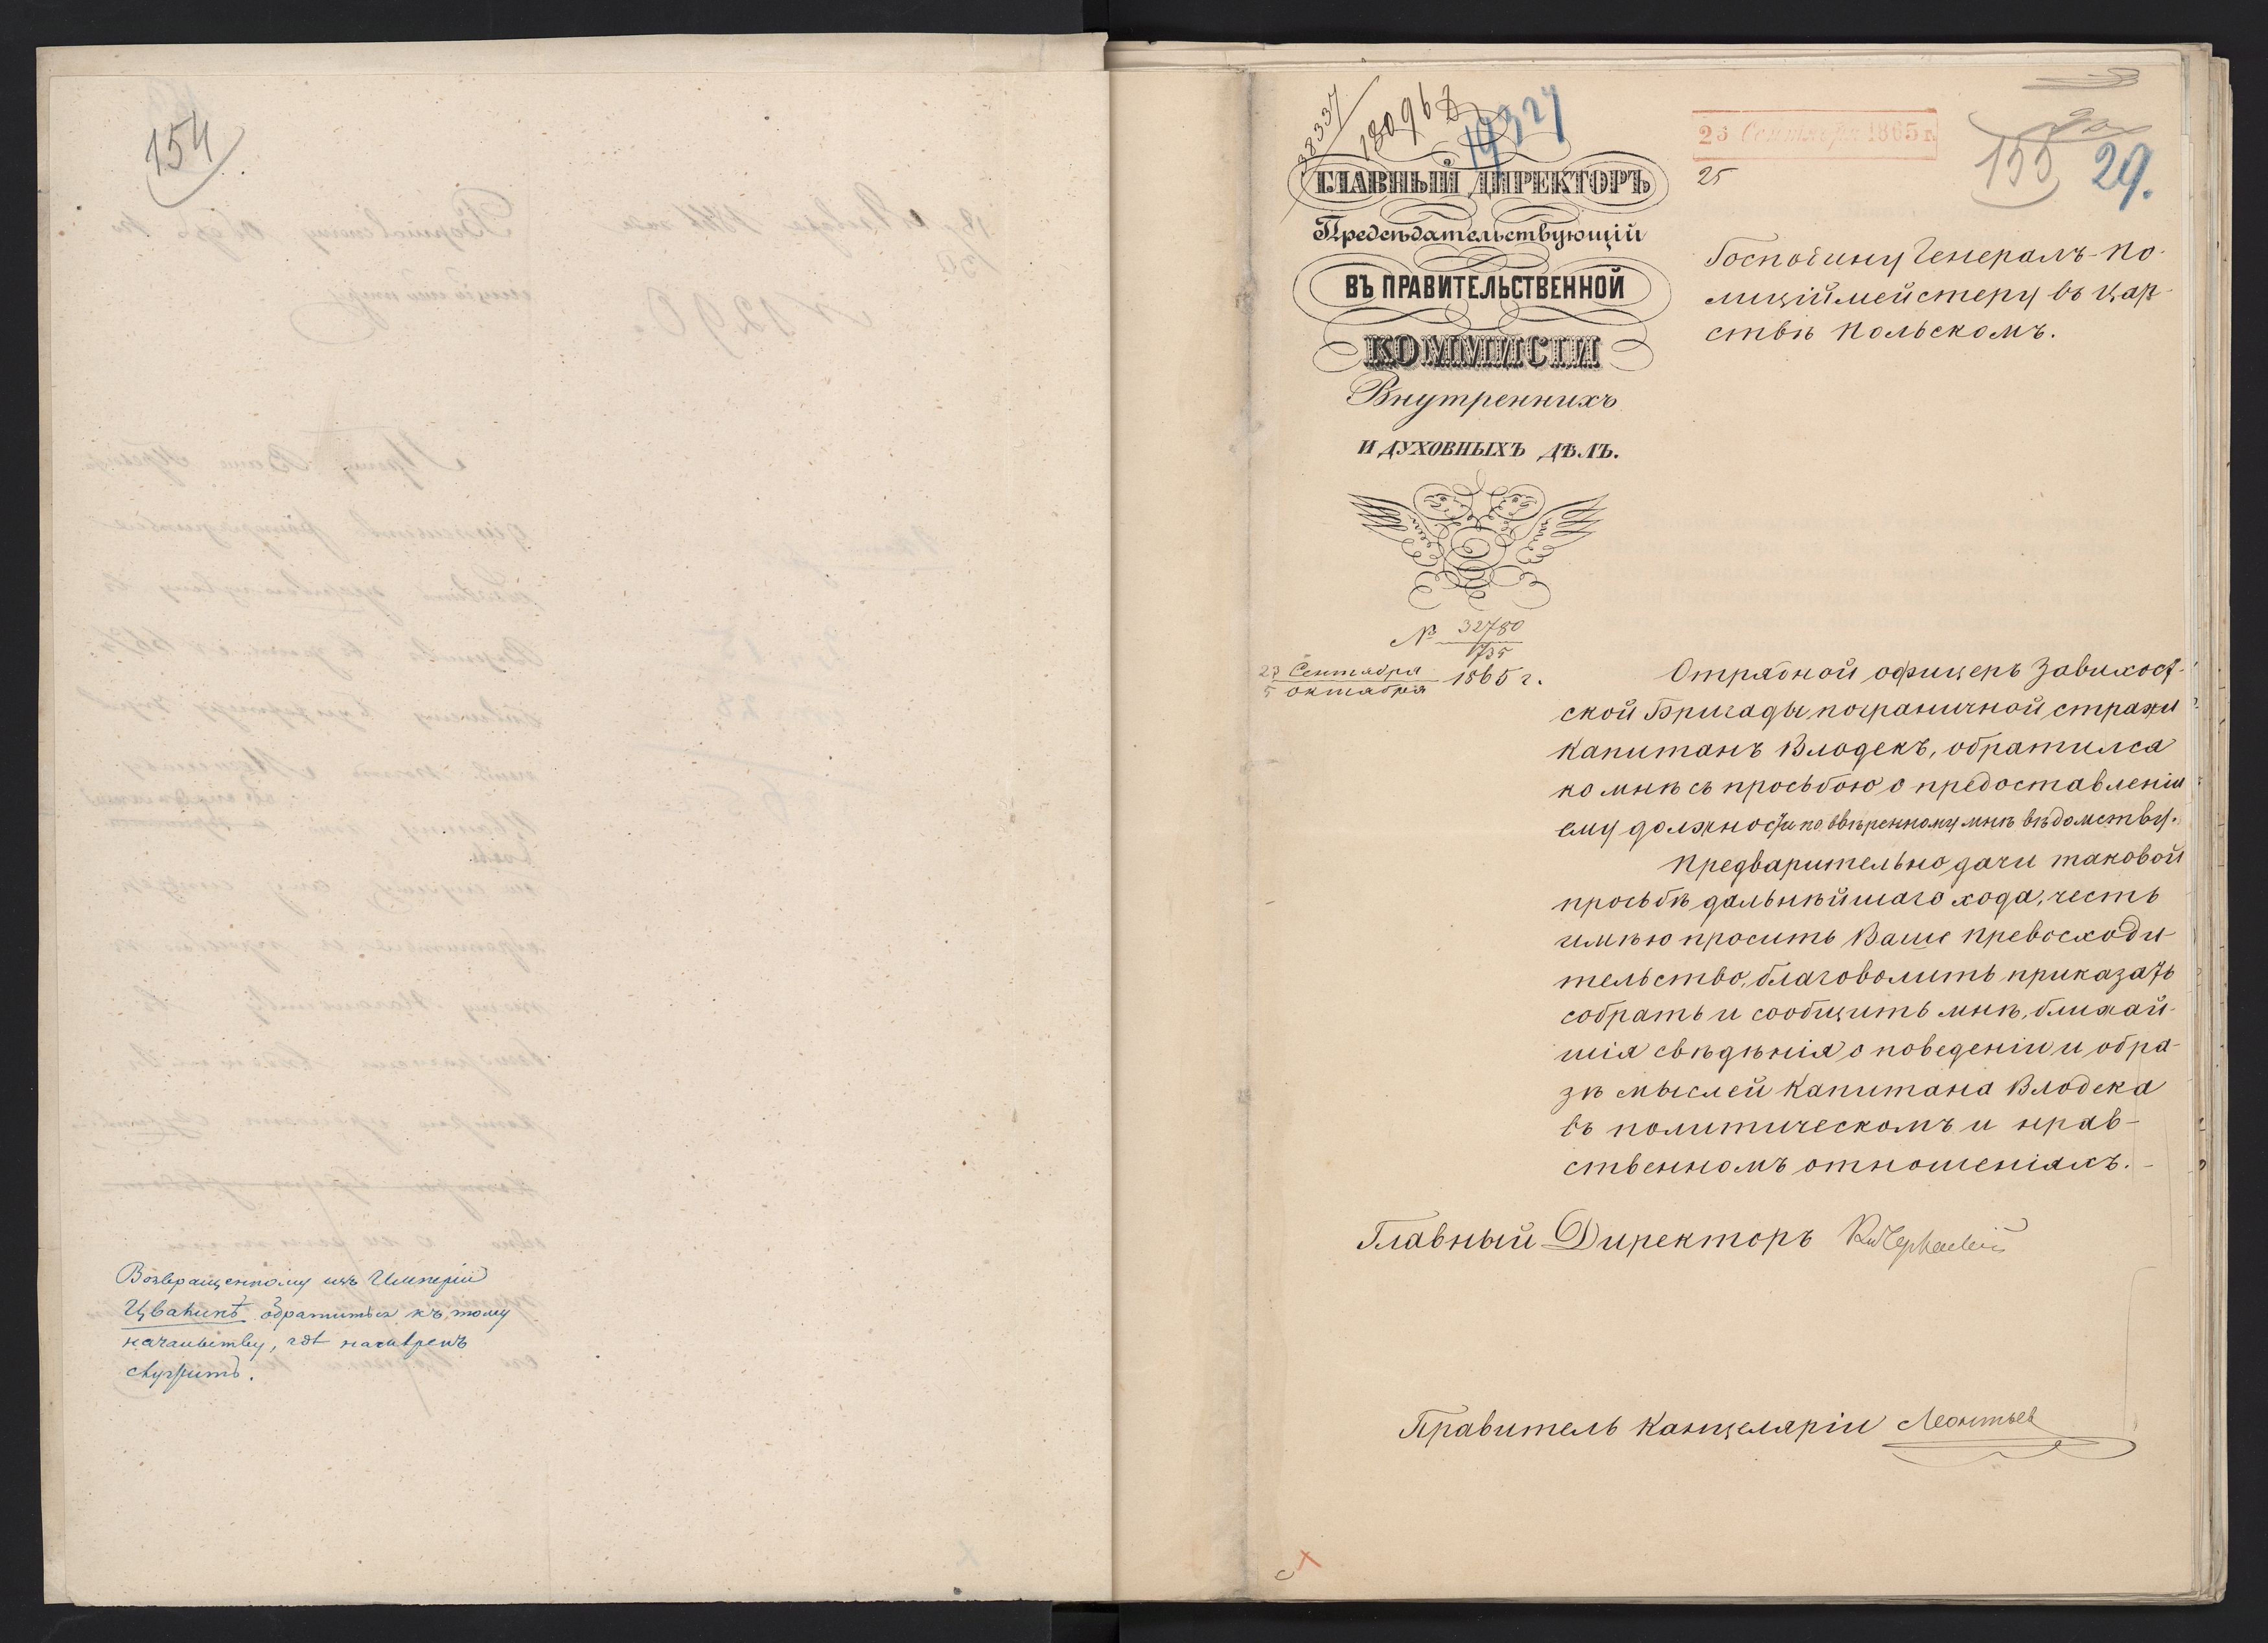 154
Возвращенному изъ Имперіи
Цвакинѣ обратиться къ тому
начальству, гдѣ намѣренъ
служить.
38337
18096
19327
23 Сентября 1865 г.
25
155
29.
ГЛАВНЫЙ ДИРЕКТОРЪ
Предсѣдательствующій
ВЪ ПРАВИТЕЛЬСТВЕННОЙ
КОММИСІИ
Внутреннихъ
И ДУХОВНЫХЪ ДѢЛЪ.
№ 32780
1735
23 Сентября
5 октября 1865 г.
Господину Генералъ-По-
лиціймейстеру въ Цар-
ствѣ Польскомъ.
Отрядной офицеръ Завихост-
ской Бригады пограничной стражи
Капитанъ Влодекъ, обратился
ко мнѣ съ просьбою о предоставленіи
ему должности по ввѣренному мнѣ вѣдомству.
Предварительно дачи таковой
просьбѣ дальнѣйшаго хода, честь
имѣю просить Ваше Превосходи-
тельство, благоволить приказать
собрать и сообщить мнѣ, ближай-
шія свѣдѣнія о поведеніи и обра-
зѣ мыслей Капитана Влодека
въ политическомъ и нрав-
ственномъ отношеніяхъ.-
Главный Директоръ Кн Черкаскій
Правитель Канцеляріи Леонтьев